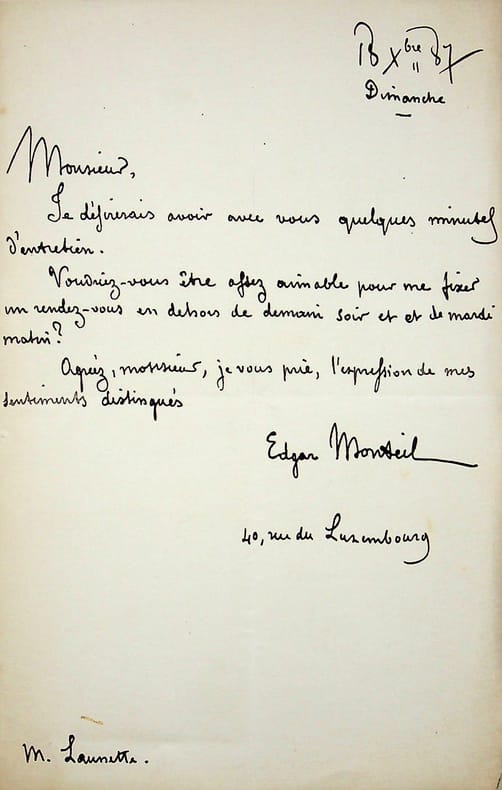 18 Xbre 87
Dimanche
Monsieur,
Je désirerais avoir avec vous quelques minutes
d'entretien.
Voudriez-vous être assez aimable pour me fixer
un rendez-vous en dehors de demain soir et et de mardi
matin?
Agréez, monsieur, je vous prie, l'expression de mes
sentiments distingués
Edgar Monteil
40, rue du Luxembourg
M. Launette.